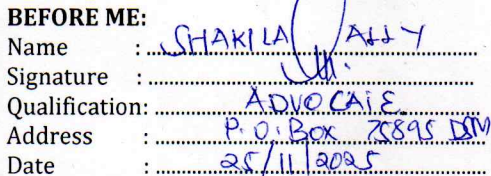 BEFORE ME:
Name : SHAKILA ALLY
Signature :
Qualification: ADVOCATE
Address : P.O. Box 75895 DSM
Date : 25/11/2025